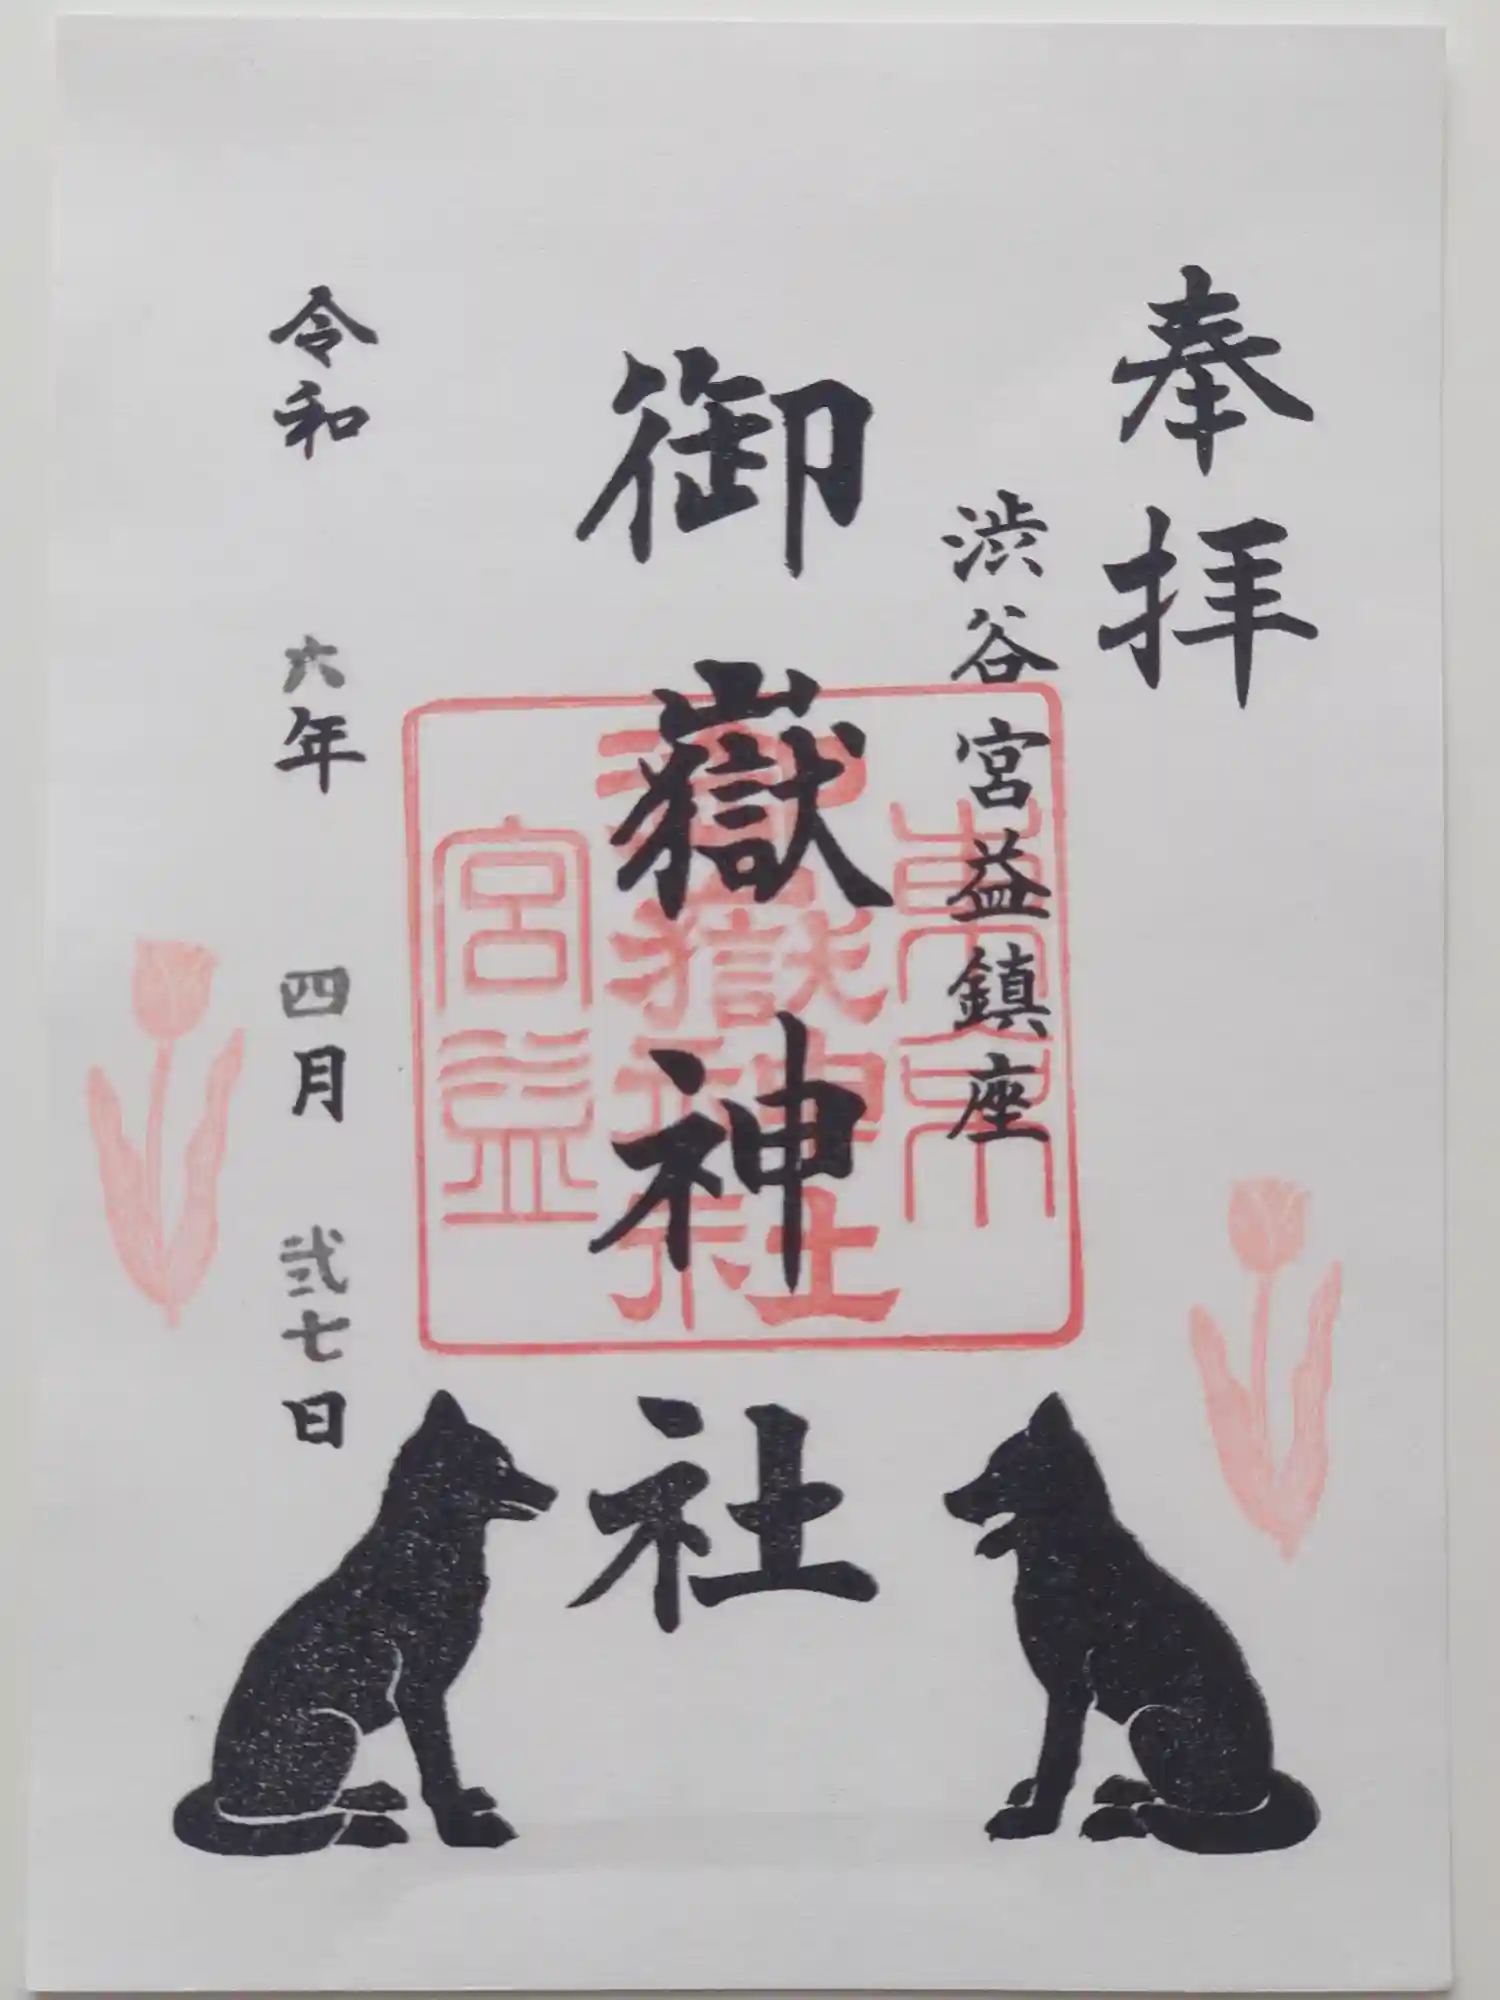 奉拝
渋谷宮益鎮座
御嶽神社
令和 六年 四月 弐七日
東京
御嶽神社
宮益